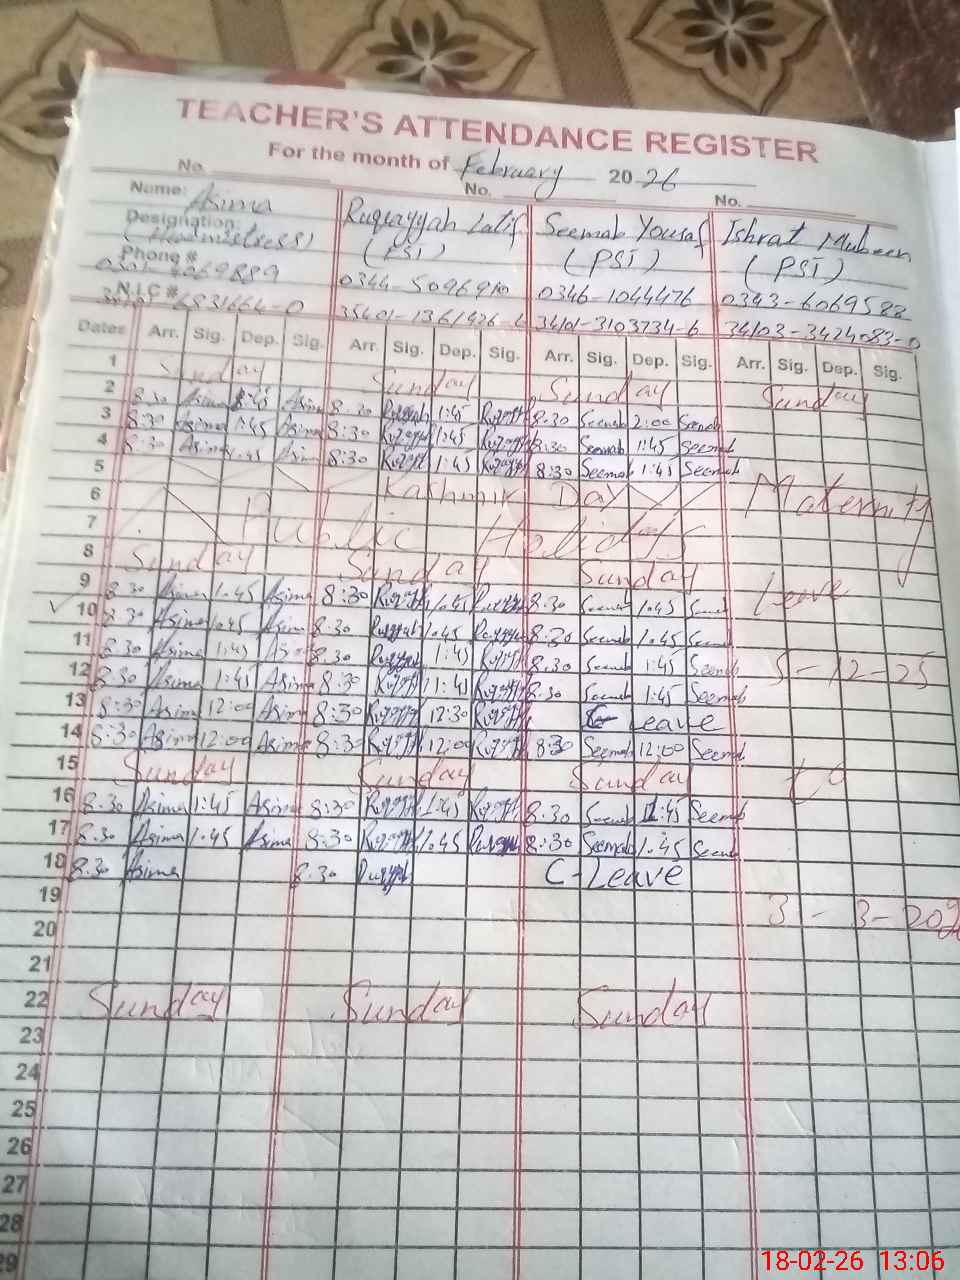 TEACHER'S ATTENDANCE REGISTER
For the month of February 2026
No. No. No.
Name: Asima Ruqayyah Latif Seemab Yousaf Ishrat Mubeen
Designation: (Headmistress) (PST) (PST) (PST)
Phone # 0344-5096910 0346-1044476 0343-6069588
N.I.C # 34101-3103734-6 34103-3424083-0
Dates Arr. Sig. Dep. Sig. Arr. Sig. Dep. Sig. Arr. Sig. Dep. Sig. Arr. Sig. Dep. Sig.
1 Sunday Sunday Sunday Sunday
2 8:30 Asima 1:45 Asima 8:30 1:45 8:30 Seemab 2:00 Seemab
3 8:30 Asima 1:45 Asima 8:30 1:45 8:30 Seemab 1:45 Seemab
4 8:30 Asima 1:45 Asima 8:30 1:45 8:30 Seemab 1:45 Seemab
5 Kashmir Day Maternity
6
7 Public Holidays
8 Sunday Sunday Sunday
9 8:30 Asima 1:45 Asima 8:30 1:45 8:30 Seemab 1:45 Seemab Leave
10 8:30 Asima 1:45 Asima 8:30 1:45 8:30 Seemab 1:45 Seemab
11 8:30 Asima 1:45 Asima 8:30 1:45 8:30 Seemab 1:45 Seemab 5-12-25
12 8:30 Asima 1:45 Asima 8:30 1:45 8:30 Seemab 1:45 Seemab
13 8:30 Asima 12:00 Asima 8:30 12:30 Leave
14 8:30 Asima 12:00 Asima 8:30 12:00 8:30 Seemab 12:00 Seemab
15 Sunday Sunday Sunday to
16 8:30 Asima 1:45 Asima 8:30 1:45 8:30 Seemab 1:45 Seemab
17 8:30 Asima 1:45 Asima 8:30 1:45 8:30 Seemab 1:45 Seemab
18 8:30 Asima 8:30 C-Leave
19 3-3-202
20
21
22 Sunday Sunday Sunday
23
24
25
26
27
28
29
18-02-26 13:06